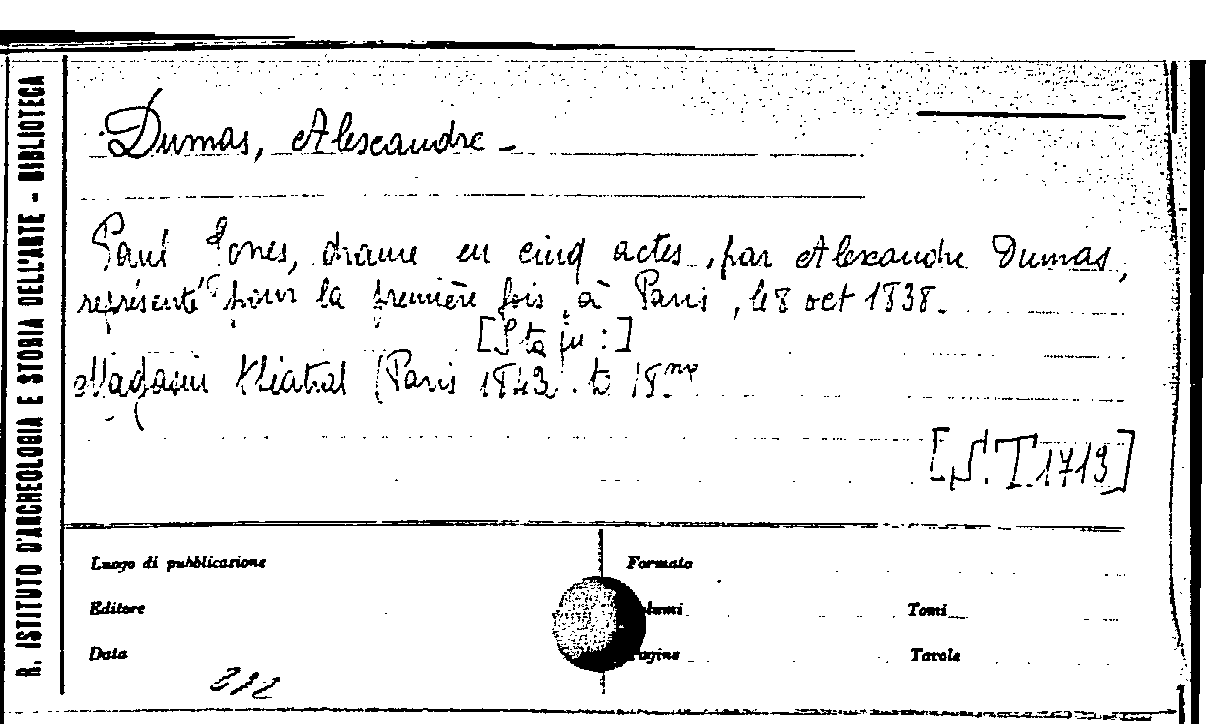 R. ISTITUTO D'ARCHEOLOGIA E STORIA DELL'ARTE - BIBLIOTECA
Dumas, Alexandre -
Paul Jones, drame en cinq actes, par Alexandre Dumas,
représenté pour la première fois, à Paris, le 8 oct 1838.
[Sta in:]
Magasin théatral (Paris 1843. to 18
[S.T 1713]
Luogo di pubblicazione
Formato
Editore
Volumi
Tomi
Data
Pagine
Tavole